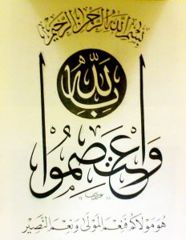 بسم الله الرحمن الرحيم
واعتصموا
بالله
هو مولاكم فنعم المولى ونعم النصير